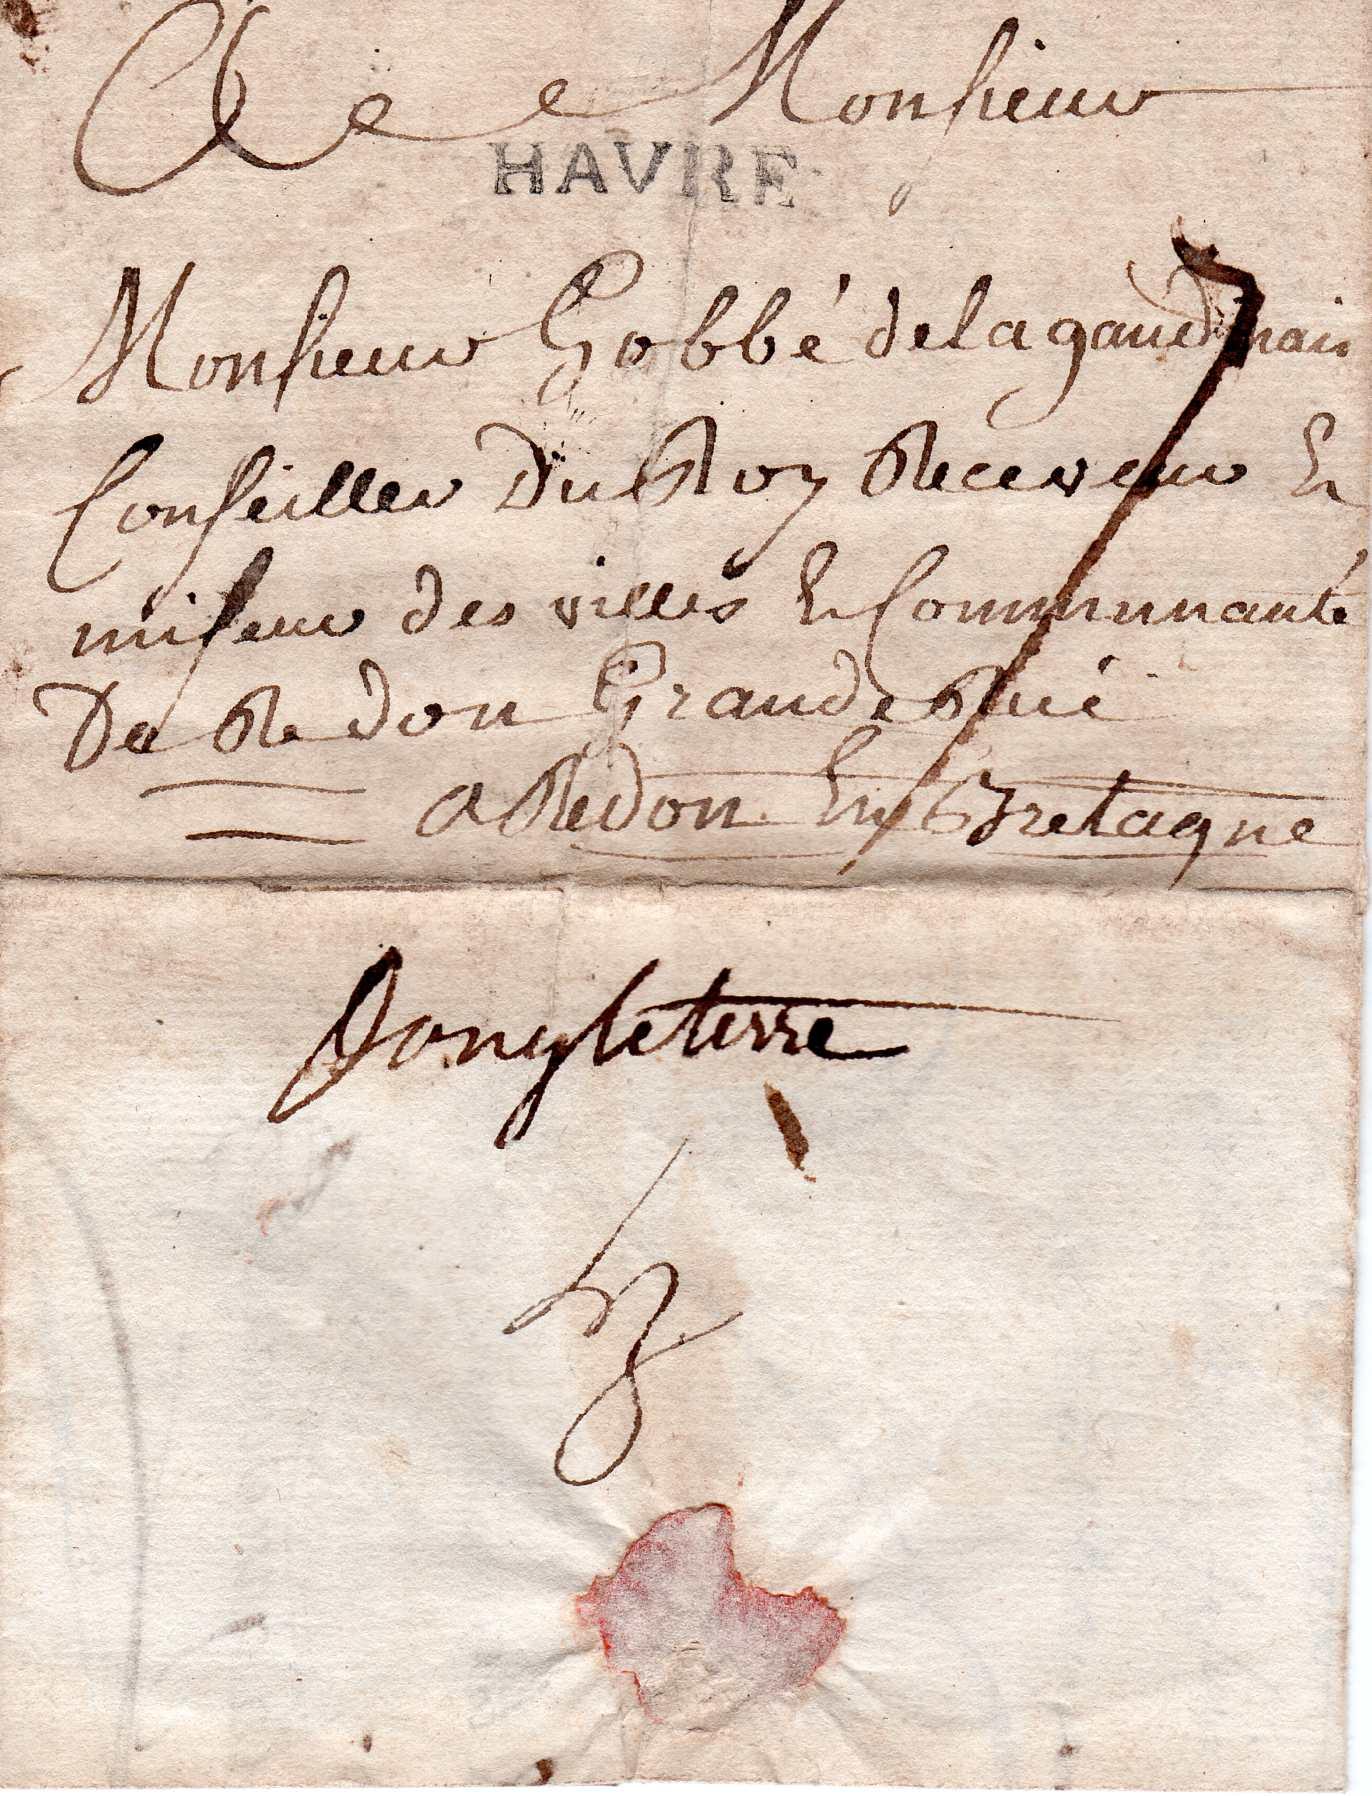 A Monsieur
HAVRE
Monsieur Gobbé delagaudinais
Conseiller Du Roy Receveur Et
miseur des villes Et Communauté
De Redon Grande Ruë
a Redon En Bretagne
Dongleterre